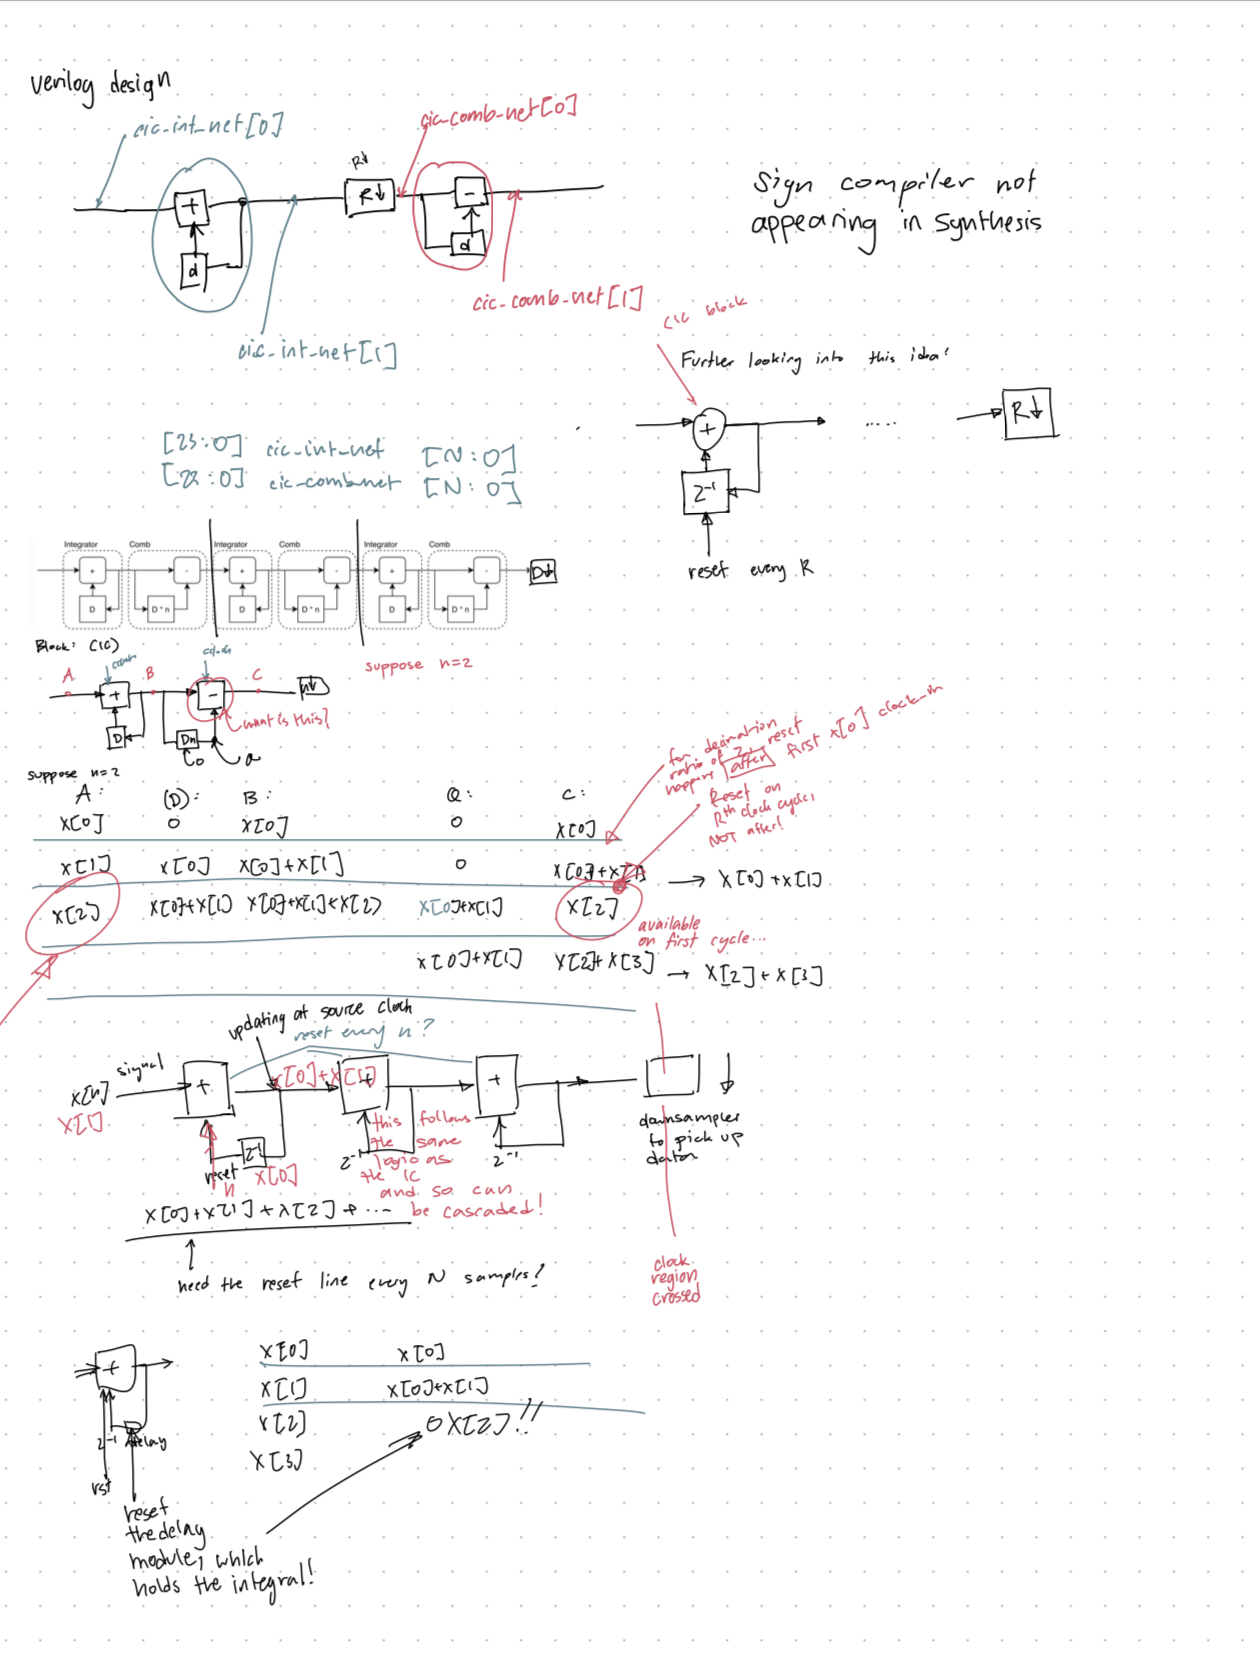 Verilog design
cic-int-net[0]
cic-comb-net[0]
R↓
+
R↓
-
d
d
cic-comb-net[1]
cic-int-net[1]
Sign compiler not
appearing in Synthesis
CIC block
Further looking into this idea!
+
.....
R↓
Z⁻¹
reset every R
[23:0] cic-int-net [N:0]
[22:0] cic-combnet [N:0]
Integrator Comb Integrator Comb Integrator Comb
+ - + - + - D↓
D D*n D D*n D D*n
Block: CIC)
suppose n=2
A B C
+ -
what is this?
D Dn
Co a
suppose n=2
for decimation
ratio of 2, reset
happens after first x[0] clock-in
Reset on
Rth clock cycle,
NOT after!
A: (D): B: Q: C:
x[0] 0 x[0] 0 x[0]
x[1] x[0] x[0]+x[1] 0 x[0]+x[1] → x[0]+x[1]
x[2] x[0]+x[1] x[0]+x[1]+x[2] x[0]+x[1] x[2]
available
on first cycle...
x[0]+x[1] x[2]+x[3] → x[2]+x[3]
updating at source clock
reset every n?
signal
x[n]
x[1]
+ x[0]+x[1] + +
this follows
the same
logic as
the IC
and so can
be cascaded!
z⁻¹ x[0]
reset
n
z⁻¹ z⁻¹
downsampler
to pick up
data
x[0]+x[1]+x[2]+...
need the reset line every N samples?
clock
region
crossed
+
z⁻¹ delay
rst
reset
the delay
module, which
holds the integral!
x[0] x[0]
x[1] x[0]+x[1]
x[2] 0x[2]!!
x[3]